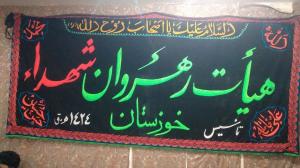 السلام علیک یا اصحاب روح الله
هیأت رهروان شهداء
خوزستان
تأسیس ۱۴۲۴ ه‍.ق